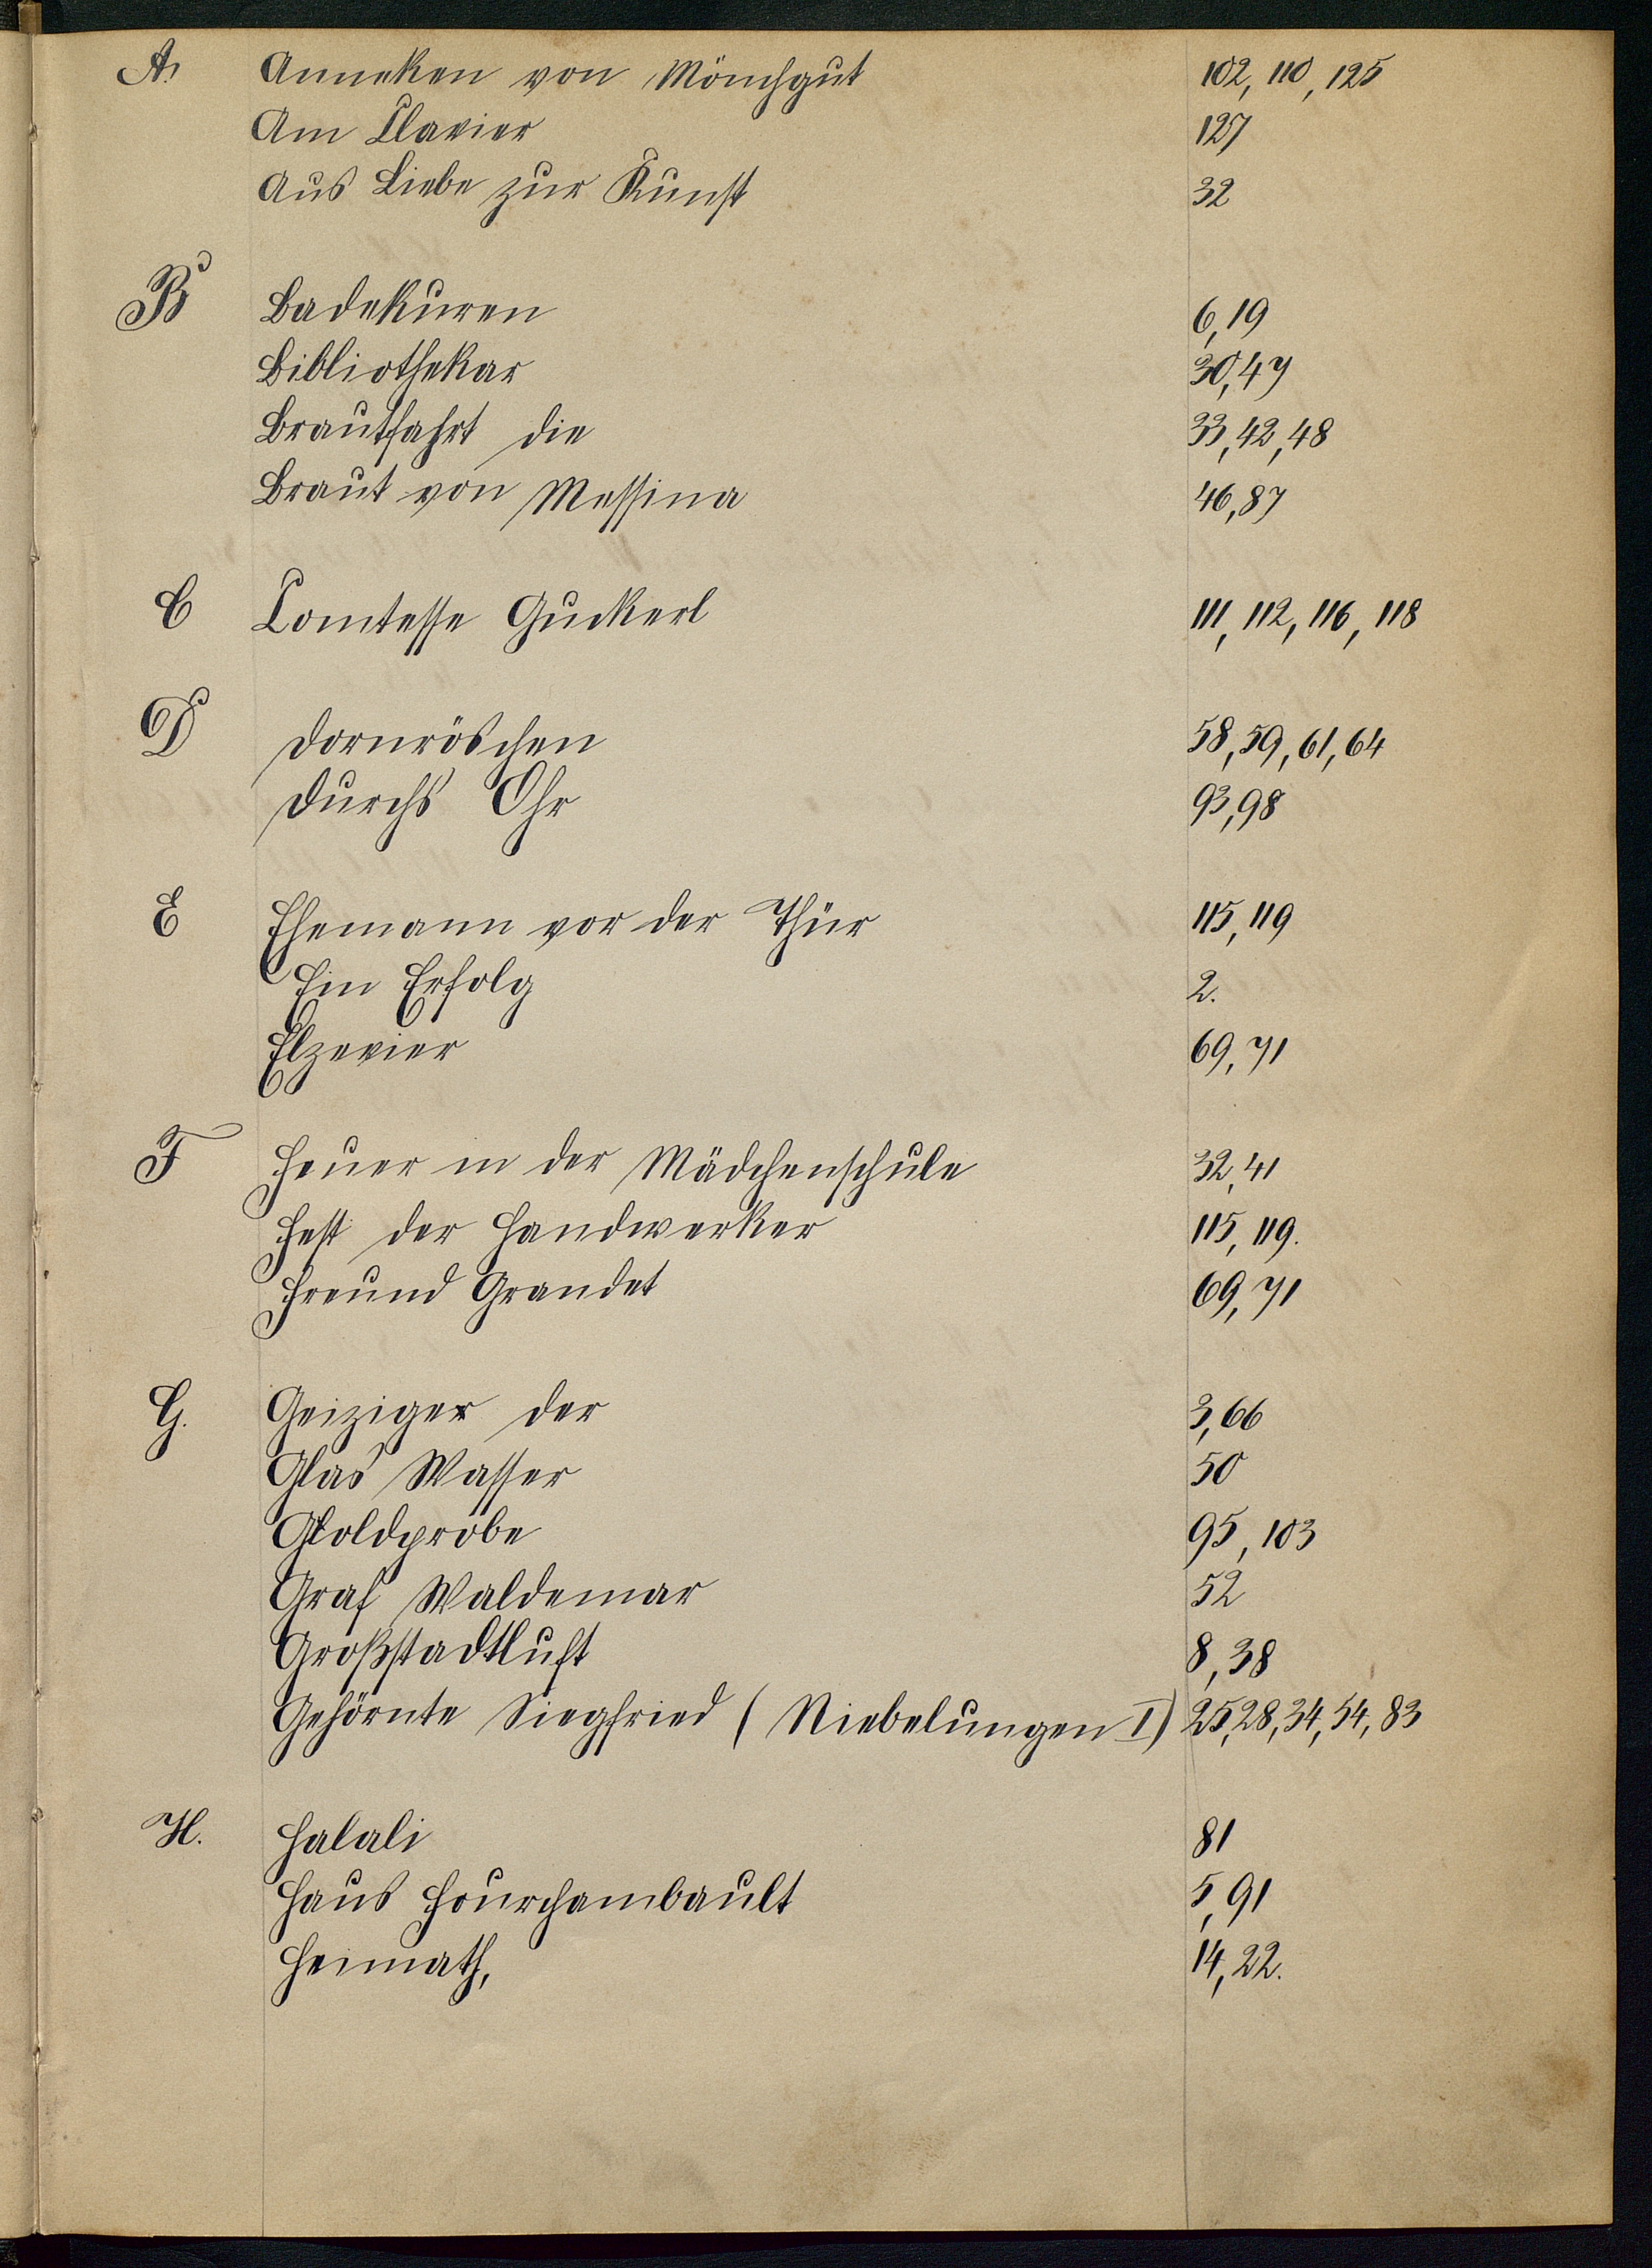 A. Anneken von Mönchgut 102, 110, 125
Am Clavier 127
Aus Liebe zur Kunst 32
B Badekuren 6, 19
Bibliothekar 30, 47
Brautfahrt die 33, 42, 48
Braut von Messina 46, 87
C Comtesse Guckerl 111, 112, 116, 118
D Dornröschen 58, 59, 61, 64
Durchs Ohr 93, 98
E Ehemann vor der Thür 115, 119
Ein Erfolg 2.
Elzevier 69, 71
F Feuer in der Mädchenschule 32, 41
Fest der Handwerker 115, 119.
Freund Grandet 69, 71
G. Geiziger der 3, 66
Glas Wasser 50
Goldprobe 95, 103
Graf Waldemar 52
Großstadtluft 8, 38
Gehörnte Siegfried (Niebelungen I) 25, 28, 34, 54, 83
H. Halali 81
Haus Fourchambault 5, 91
Heimath, 14, 22.